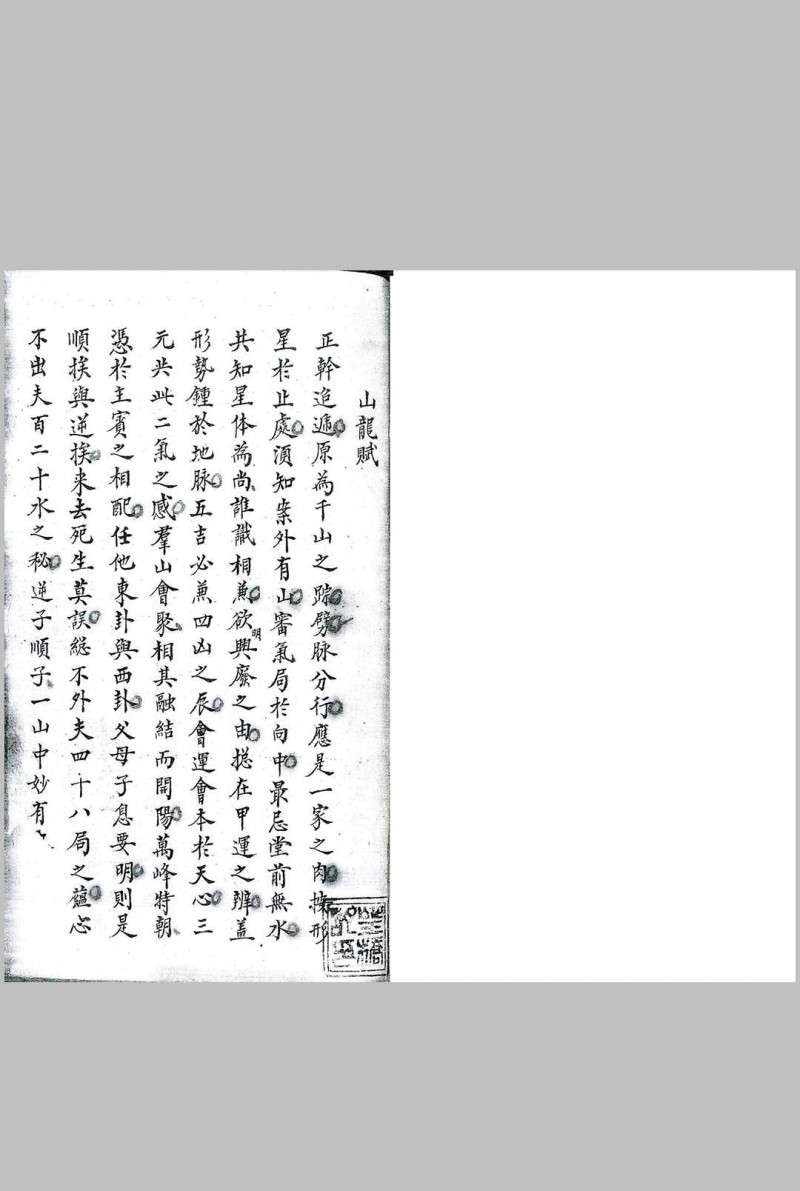 山龍賦
正幹迢遞原為千山之踪劈脉分行應是一家之肉據形
星於止處須知案外有山審氣局於向中最忌堂前無水
共知星体為尚誰識相兼欲明興廢之由搃在甲運之辨盖
形勢鍾於地脉五吉必兼四凶之辰會運會本於天心三
元共此二氣之感羣山會聚相其融結而開陽萬峰特朝
憑於主賓之相配任他東卦與西卦父母子息要明則是
順挨與逆挨来去死生莫誤總不外夫四十八局之蘊忘
不出夫百二十水之秘逆子順子一山中妙有